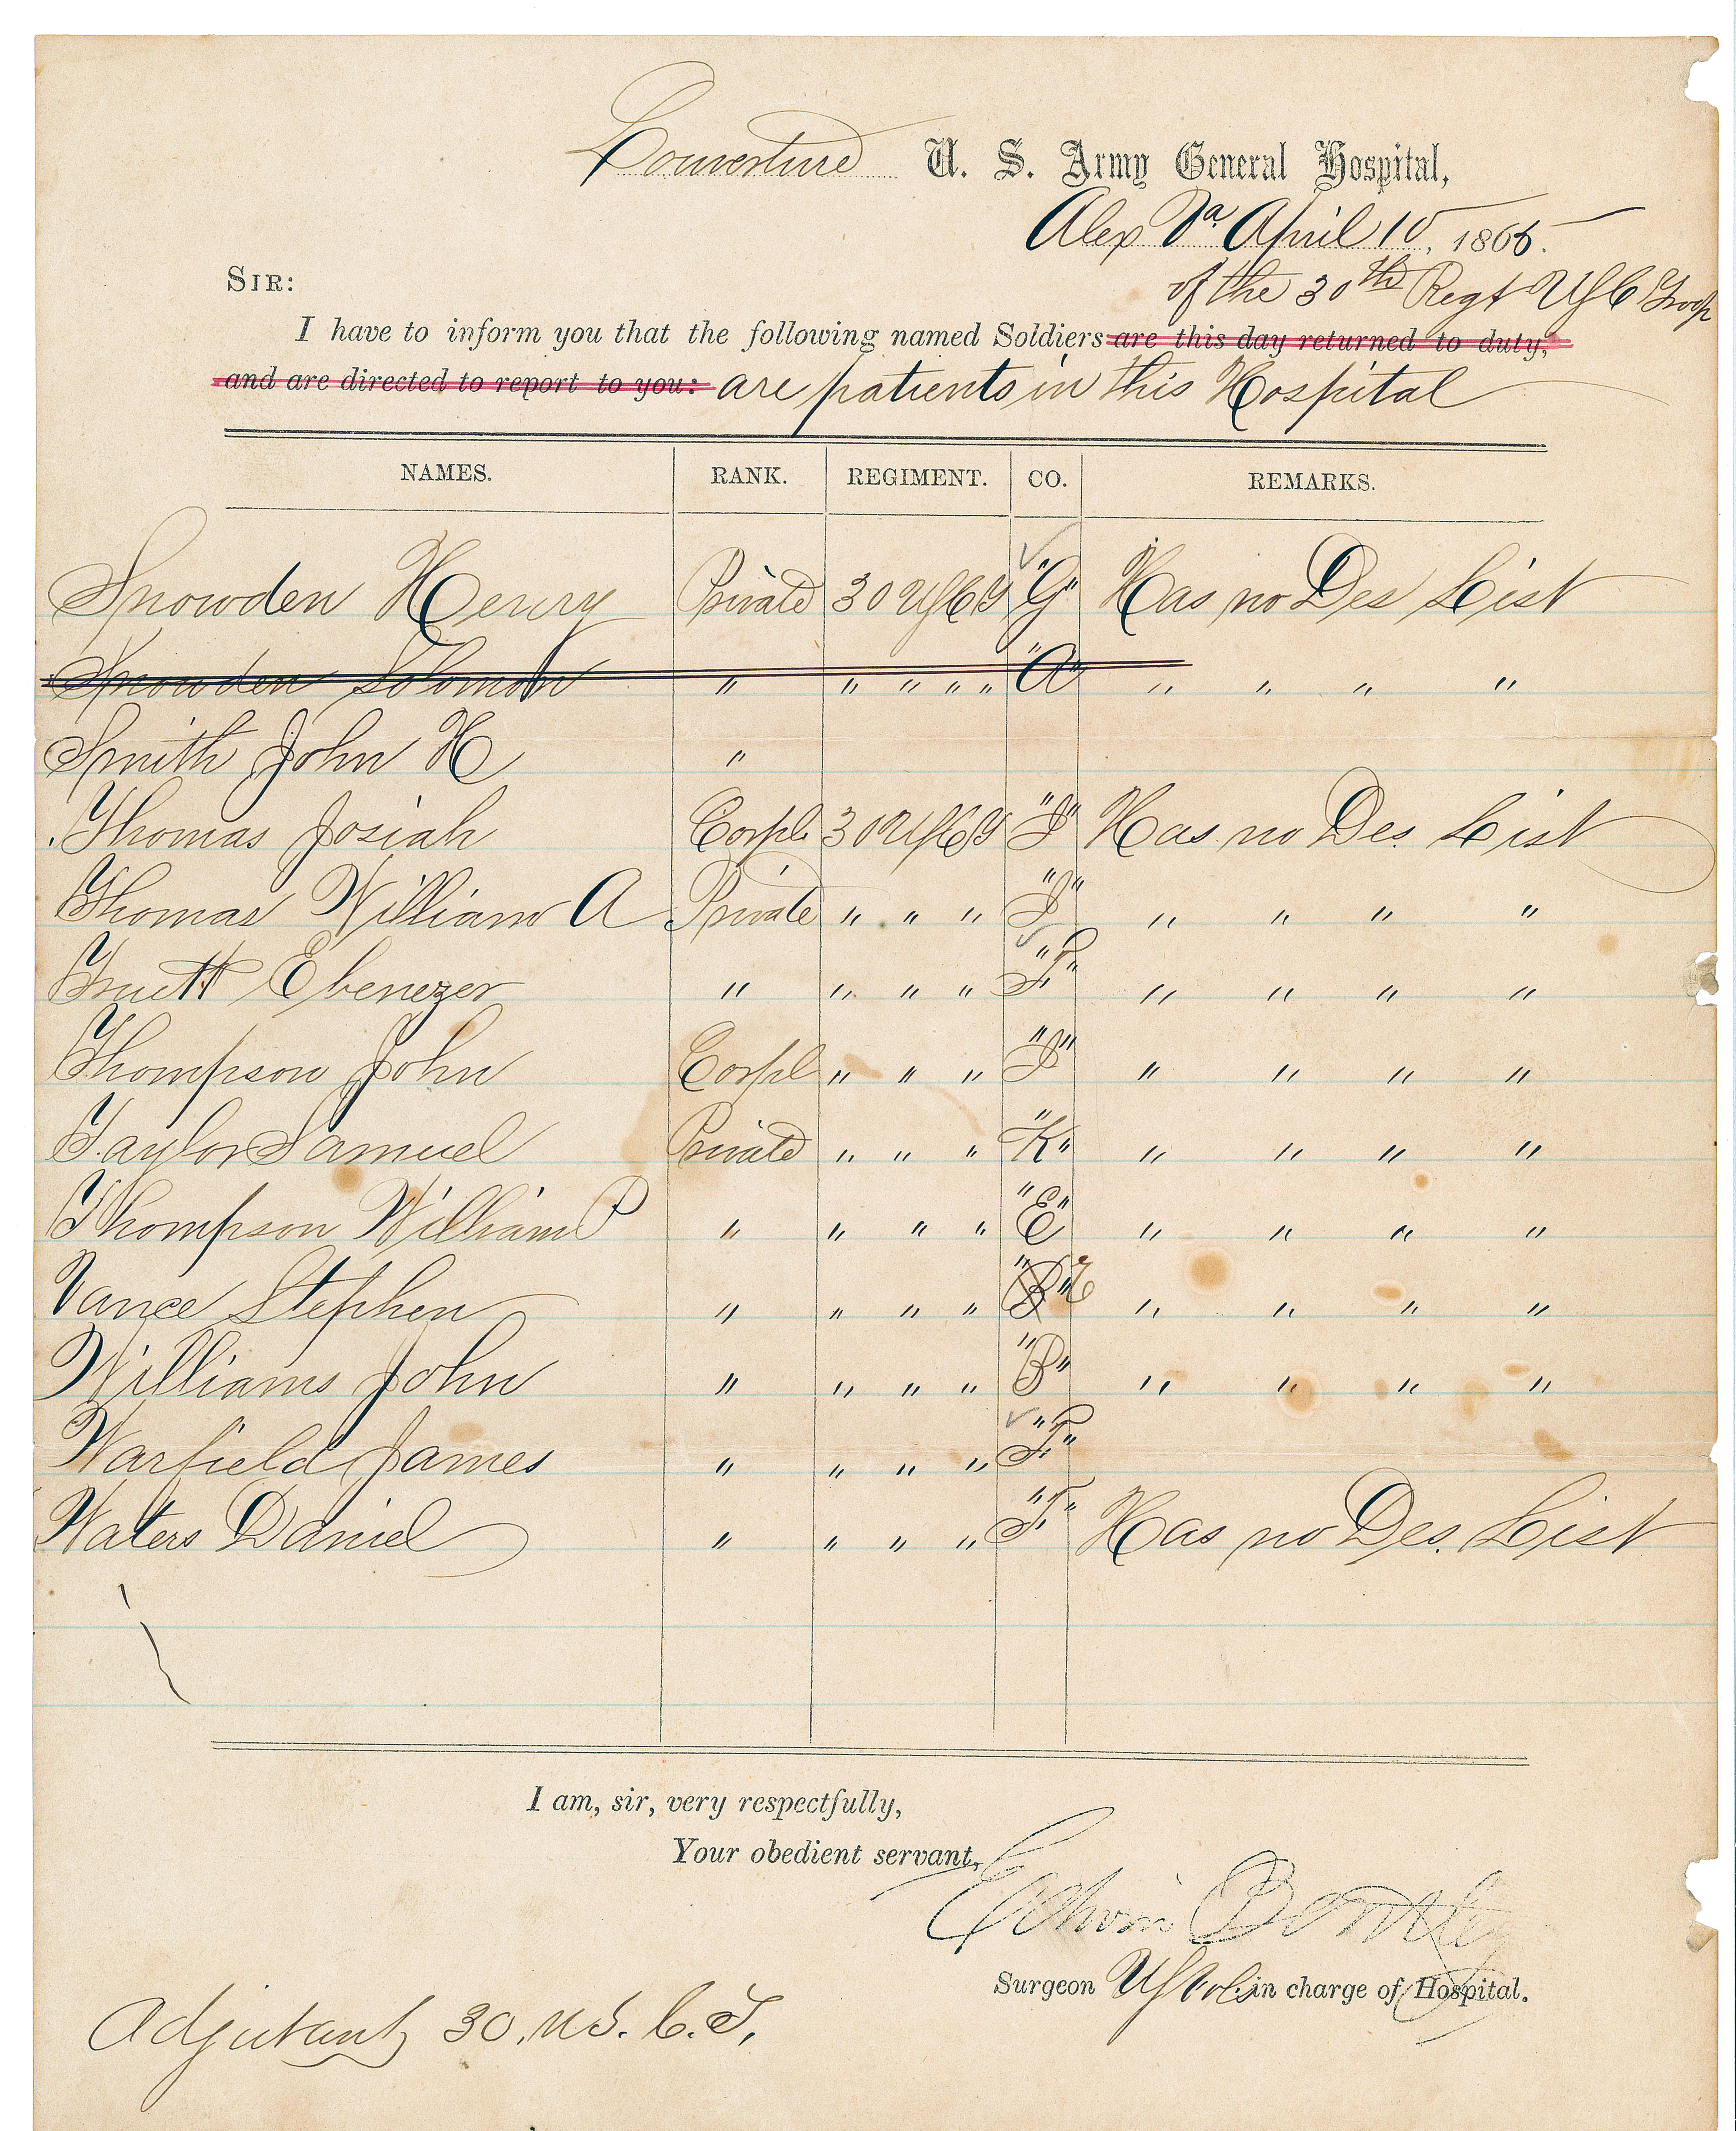 Louverture U. S. Army General Hospital,
Alex Va. April 10, 1865.
SIR:
of the 30th Regt USC Troop
I have to inform you that the following named Soldiers are this day returned to duty,
and are directed to report to you: are patients in this Hospital
NAMES. RANK. REGIMENT. CO. REMARKS.
Snowden Henry Private 30 USCT "G" Has no Des List
Snowden Solomon " " " " " "A" " " " "
Smith John H "
Thomas Josiah Corpl 30 USCT "I" Has no Des. List
Thomas William A Private " " " "I" " " " "
Truett Ebenezer " " " " "F" " " " "
Thompson John Corpl " " " "I" " " " "
Taylor Samuel Private " " " "K" " " " "
Thompson William P " " " " "E" " " " "
Vance Stephen " " " " "B" E " " " "
Williams John " " " " "B" " " " "
Warfield James " " " " "F"
Waters Daniel " " " " "F" Has no Des. List
I am, sir, very respectfully,
Your obedient servant,
Edwin Bentley
Surgeon US Vols in charge of Hospital.
Adjutant 30. U.S. C. T.